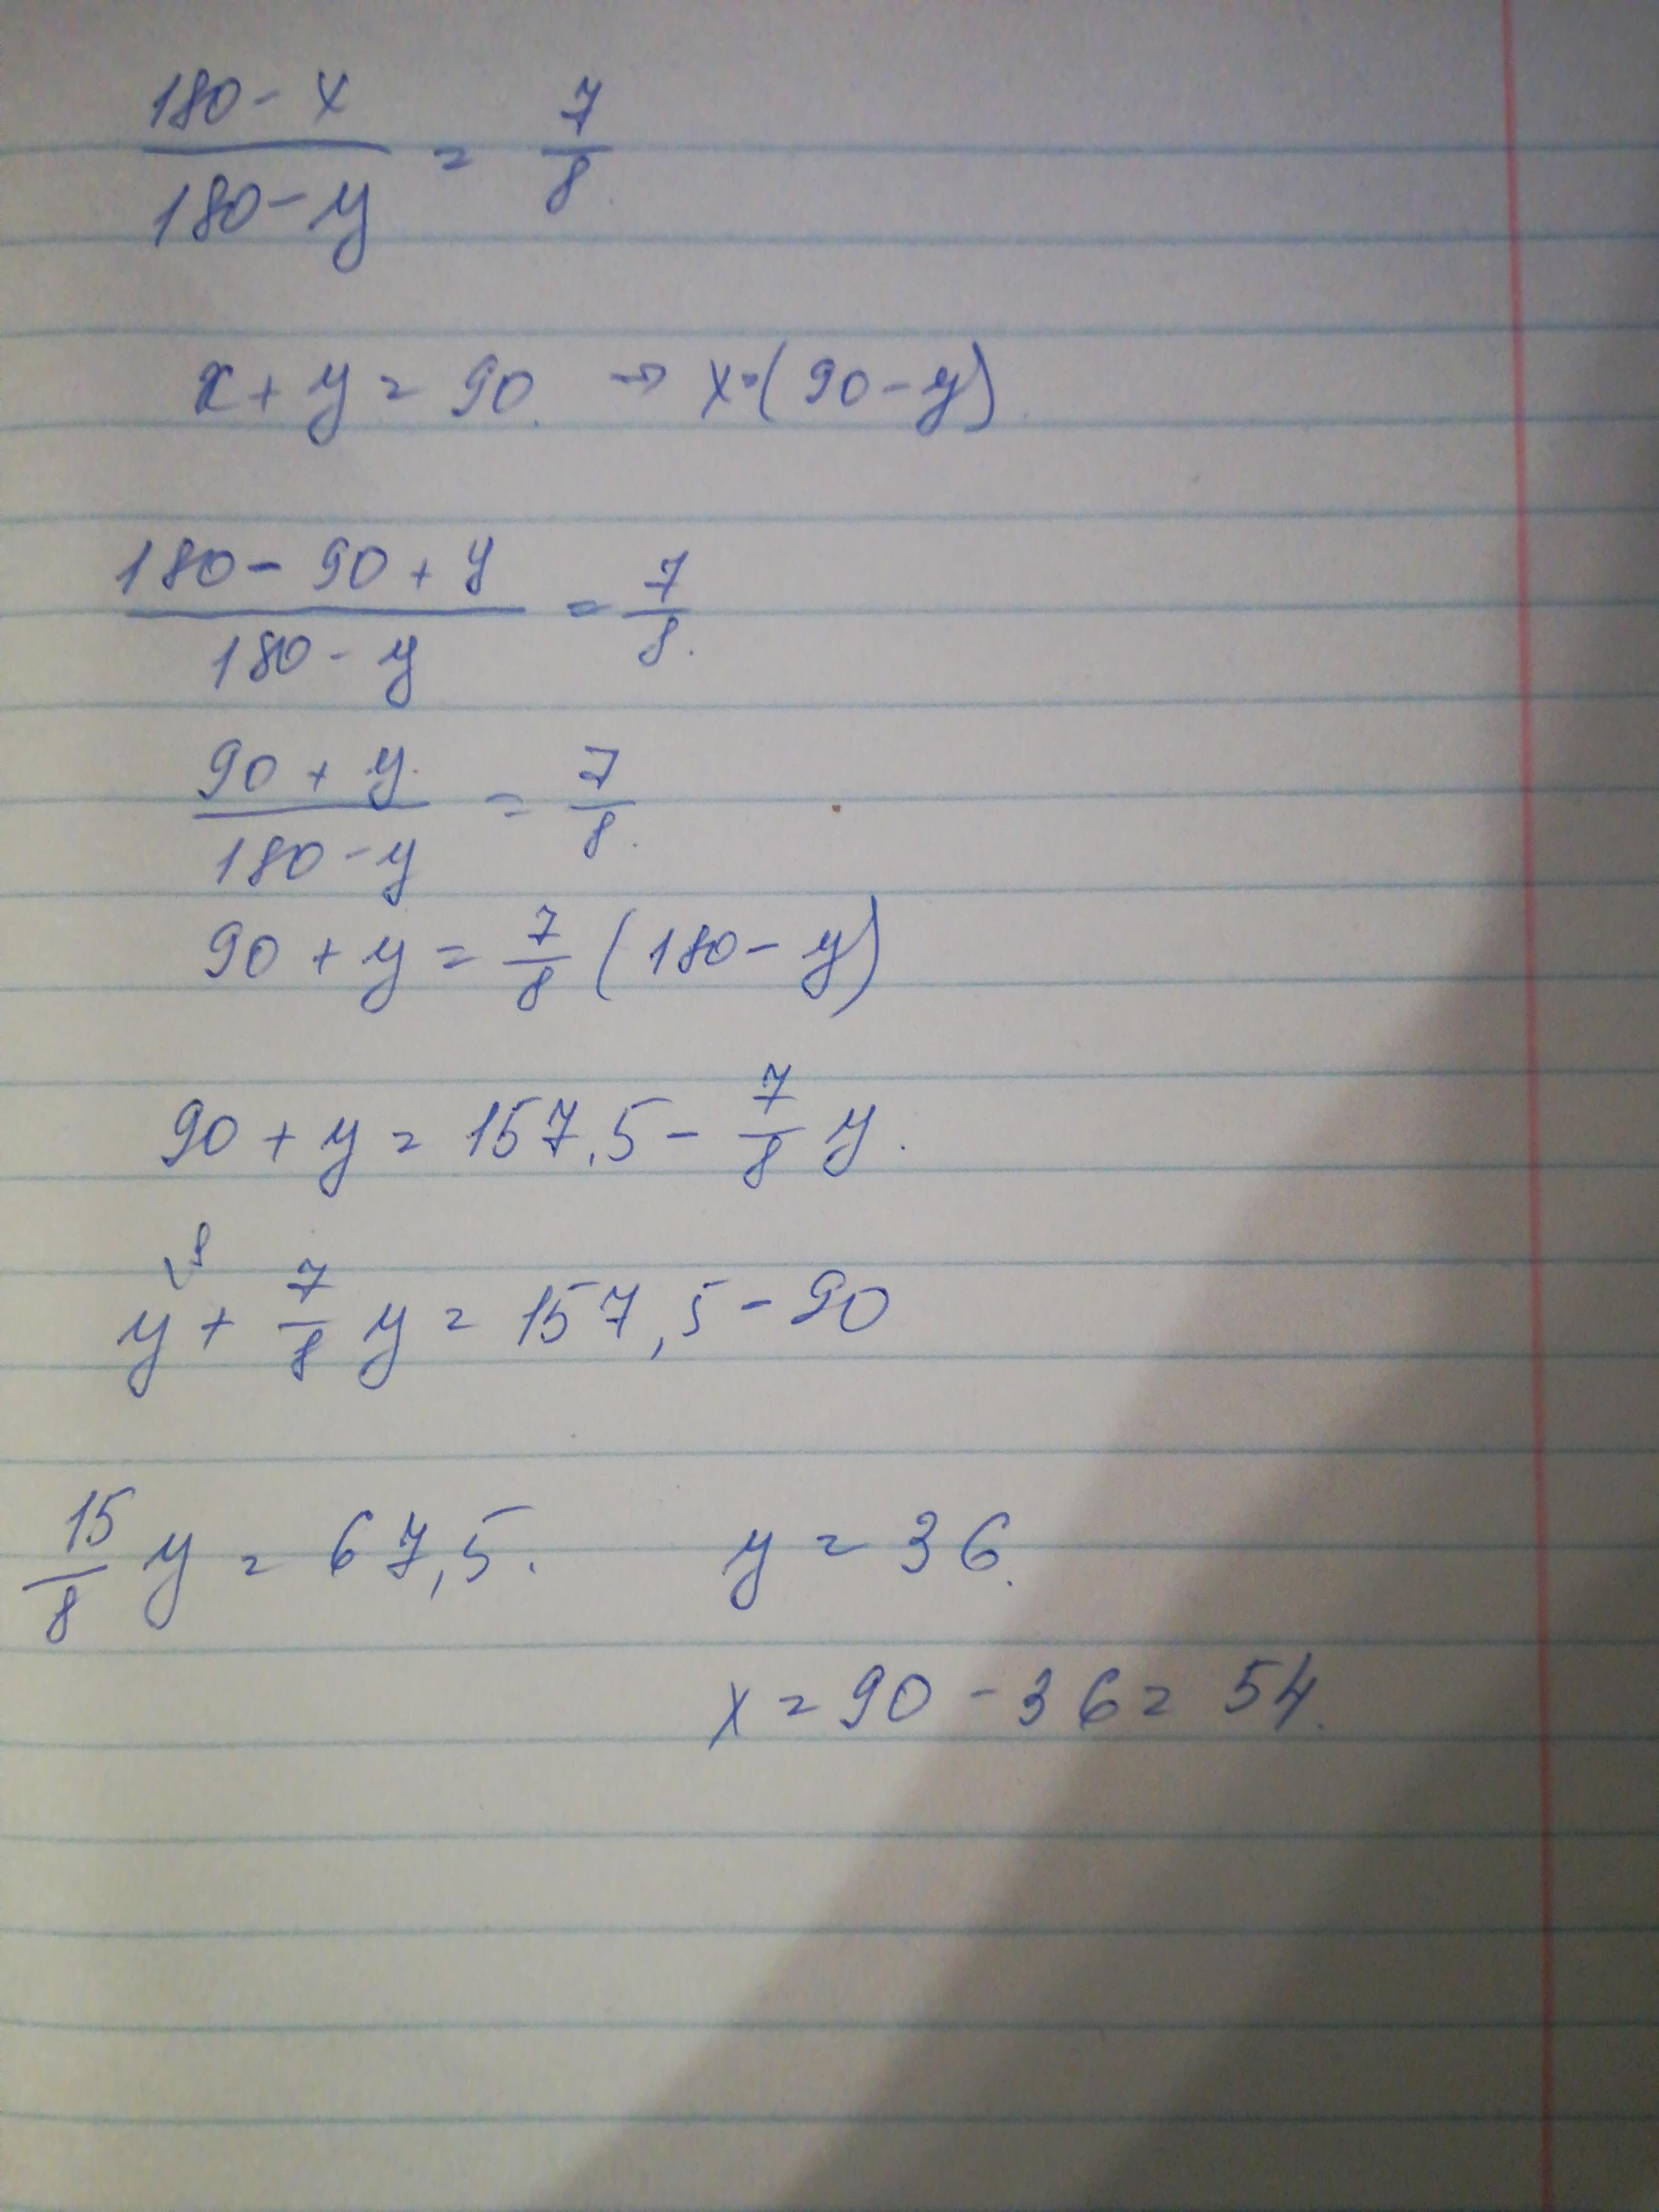 180 - x / 180 - y = 7/8.
x + y = 90. → x = (90 - y).
180 - 90 + y / 180 - y = 7/8.
90 + y. / 180 - y = 7/8.
90 + y = 7/8 (180 - y)
90 + y = 157,5 - 7/8 y.
8
y + 7/8 y = 157,5 - 90
15/8 y = 67,5. y = 36.
x = 90 - 36 = 54.